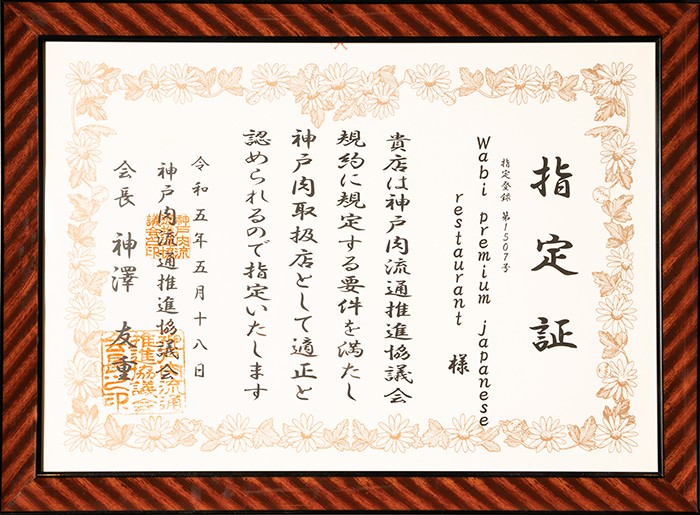 指定証
指定登録 第1507号
Wabi premium japanese
restaurant 様
貴店は神戸肉流通推進協議会
規約に規定する要件を満たし
神戸肉取扱店として適正と
認められるので指定いたします
令和五年五月十八日
神戸肉流通推進協議会
会長 神澤 友重